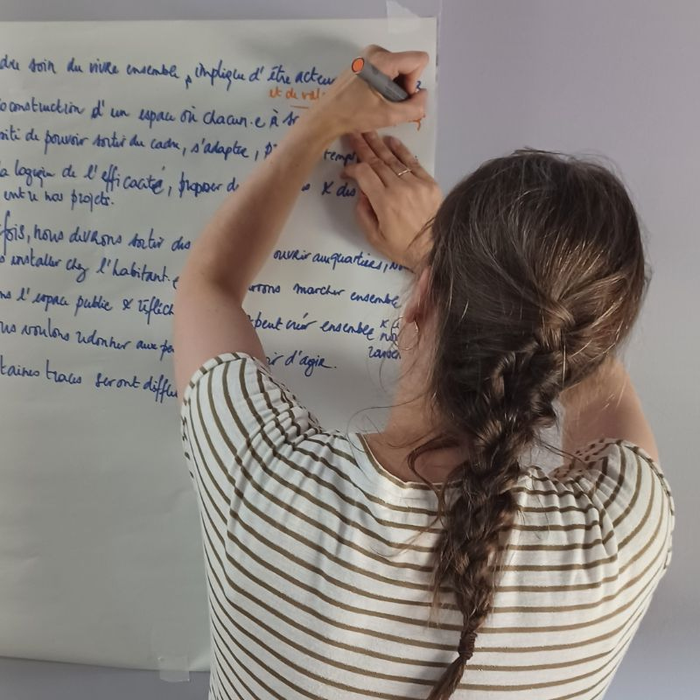 dre soin du vivre ensemble, implique d'être acteu
et de val
coconstruction d'un espace où chacun.e à s
sité de pouvoir sortir du cadre, s'adapter,
temp
la logique de l'efficacité, proposer d & des
entre nos projets.
fois, nous devrons sortir des ouvrir aux quartiers,
s installer chez l'habitant.e
rons marcher ensemble
ns l'espace public & réfléch
peut créer ensemble
us voulons redonner aux p
ir d'agir.
taines traces seront diffu